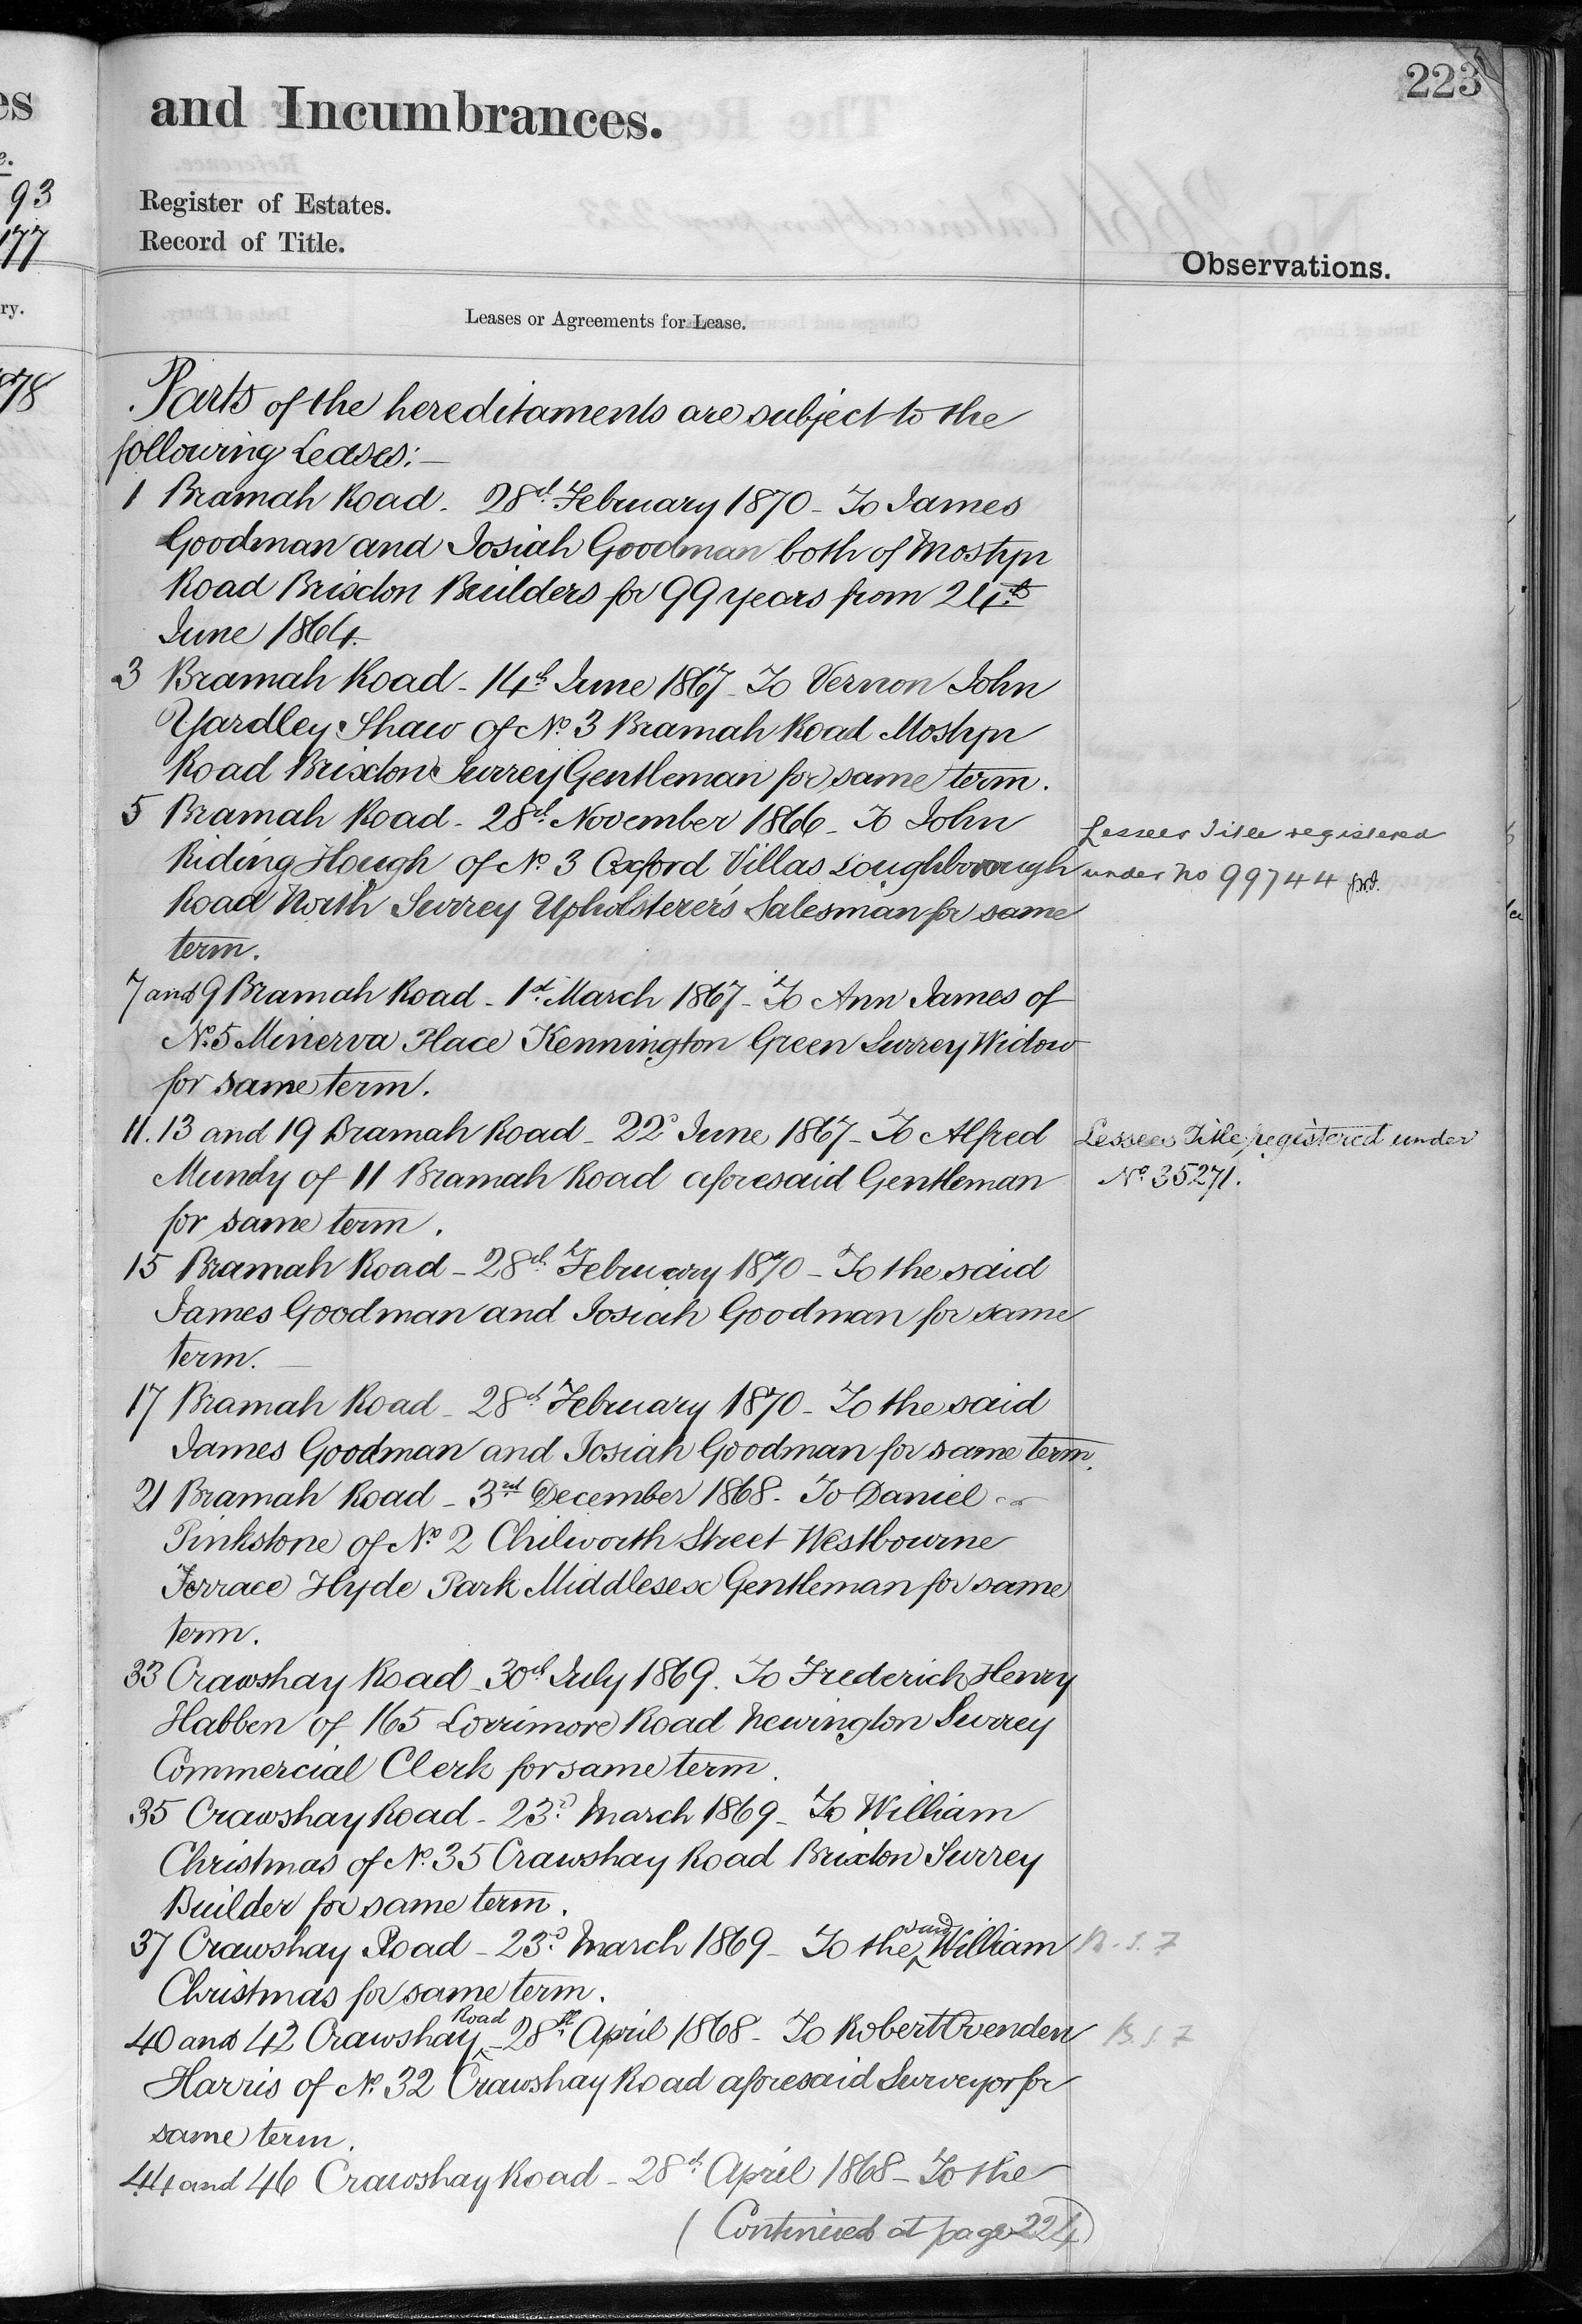 es
and Incumbrances.
223
e.
93
177
Register of Estates.
Record of Title.
Observations.
ry.
Leases or Agreements for Lease.
1878
Parts of the hereditaments are subject to the
following Leases:—
1 Bramah Road - 28th February 1870 - To James
Goodman and Josiah Goodman both of Mostyn
Road Brixton Builders for 99 years from 24th
June 1864.
3 Bramah Road - 14th June 1867 - To Vernon John
Yardley Shaw of No. 3 Bramah Road Mostyn
Road Brixton Surrey Gentleman for same term.
5 Bramah Road - 28th November 1866 - To John
Riding Hough of No. 3 Oxford Villas Loughborough
Road North Surrey Upholsterer's Salesman for same
term.
Lessees Title registered
under No 99744
7 and 9 Bramah Road - 1st March 1867 - To Ann James of
No. 5 Minerva Place Kennington Green Surrey Widow
for same term.
11. 13 and 19 Bramah Road - 22d June 1867 - To Alfred
Mundy of 11 Bramah Road aforesaid Gentleman
for same term.
Lessees Title registered under
No. 35271.
15 Bramah Road - 28th February 1870 - To the said
James Goodman and Josiah Goodman for same
term.
17 Bramah Road - 28th February 1870 - To the said
James Goodman and Josiah Goodman for same term.
21 Bramah Road - 3rd December 1868 - To Daniel
Pinkstone of No. 2 Chilworth Street Westbourne
Terrace Hyde Park Middlesex Gentleman for same
term.
33 Crawshay Road - 30th July 1869. To Frederick Henry
Habben of 165 Lorrimore Road Newington Surrey
Commercial Clerk for same term.
35 Crawshay Road - 23d March 1869 - To William
Christmas of No. 35 Crawshay Road Brixton Surrey
Builder for same term.
37 Crawshay Road - 23d March 1869 - To the said William
Christmas for same term.
40 and 42 Crawshay Road - 28th April 1868 - To Robert Ovenden
Harris of No. 32 Crawshay Road aforesaid Surveyor for
same term.
44 and 46 Crawshay Road - 28th April 1868 - To the
(Continued at page 224)